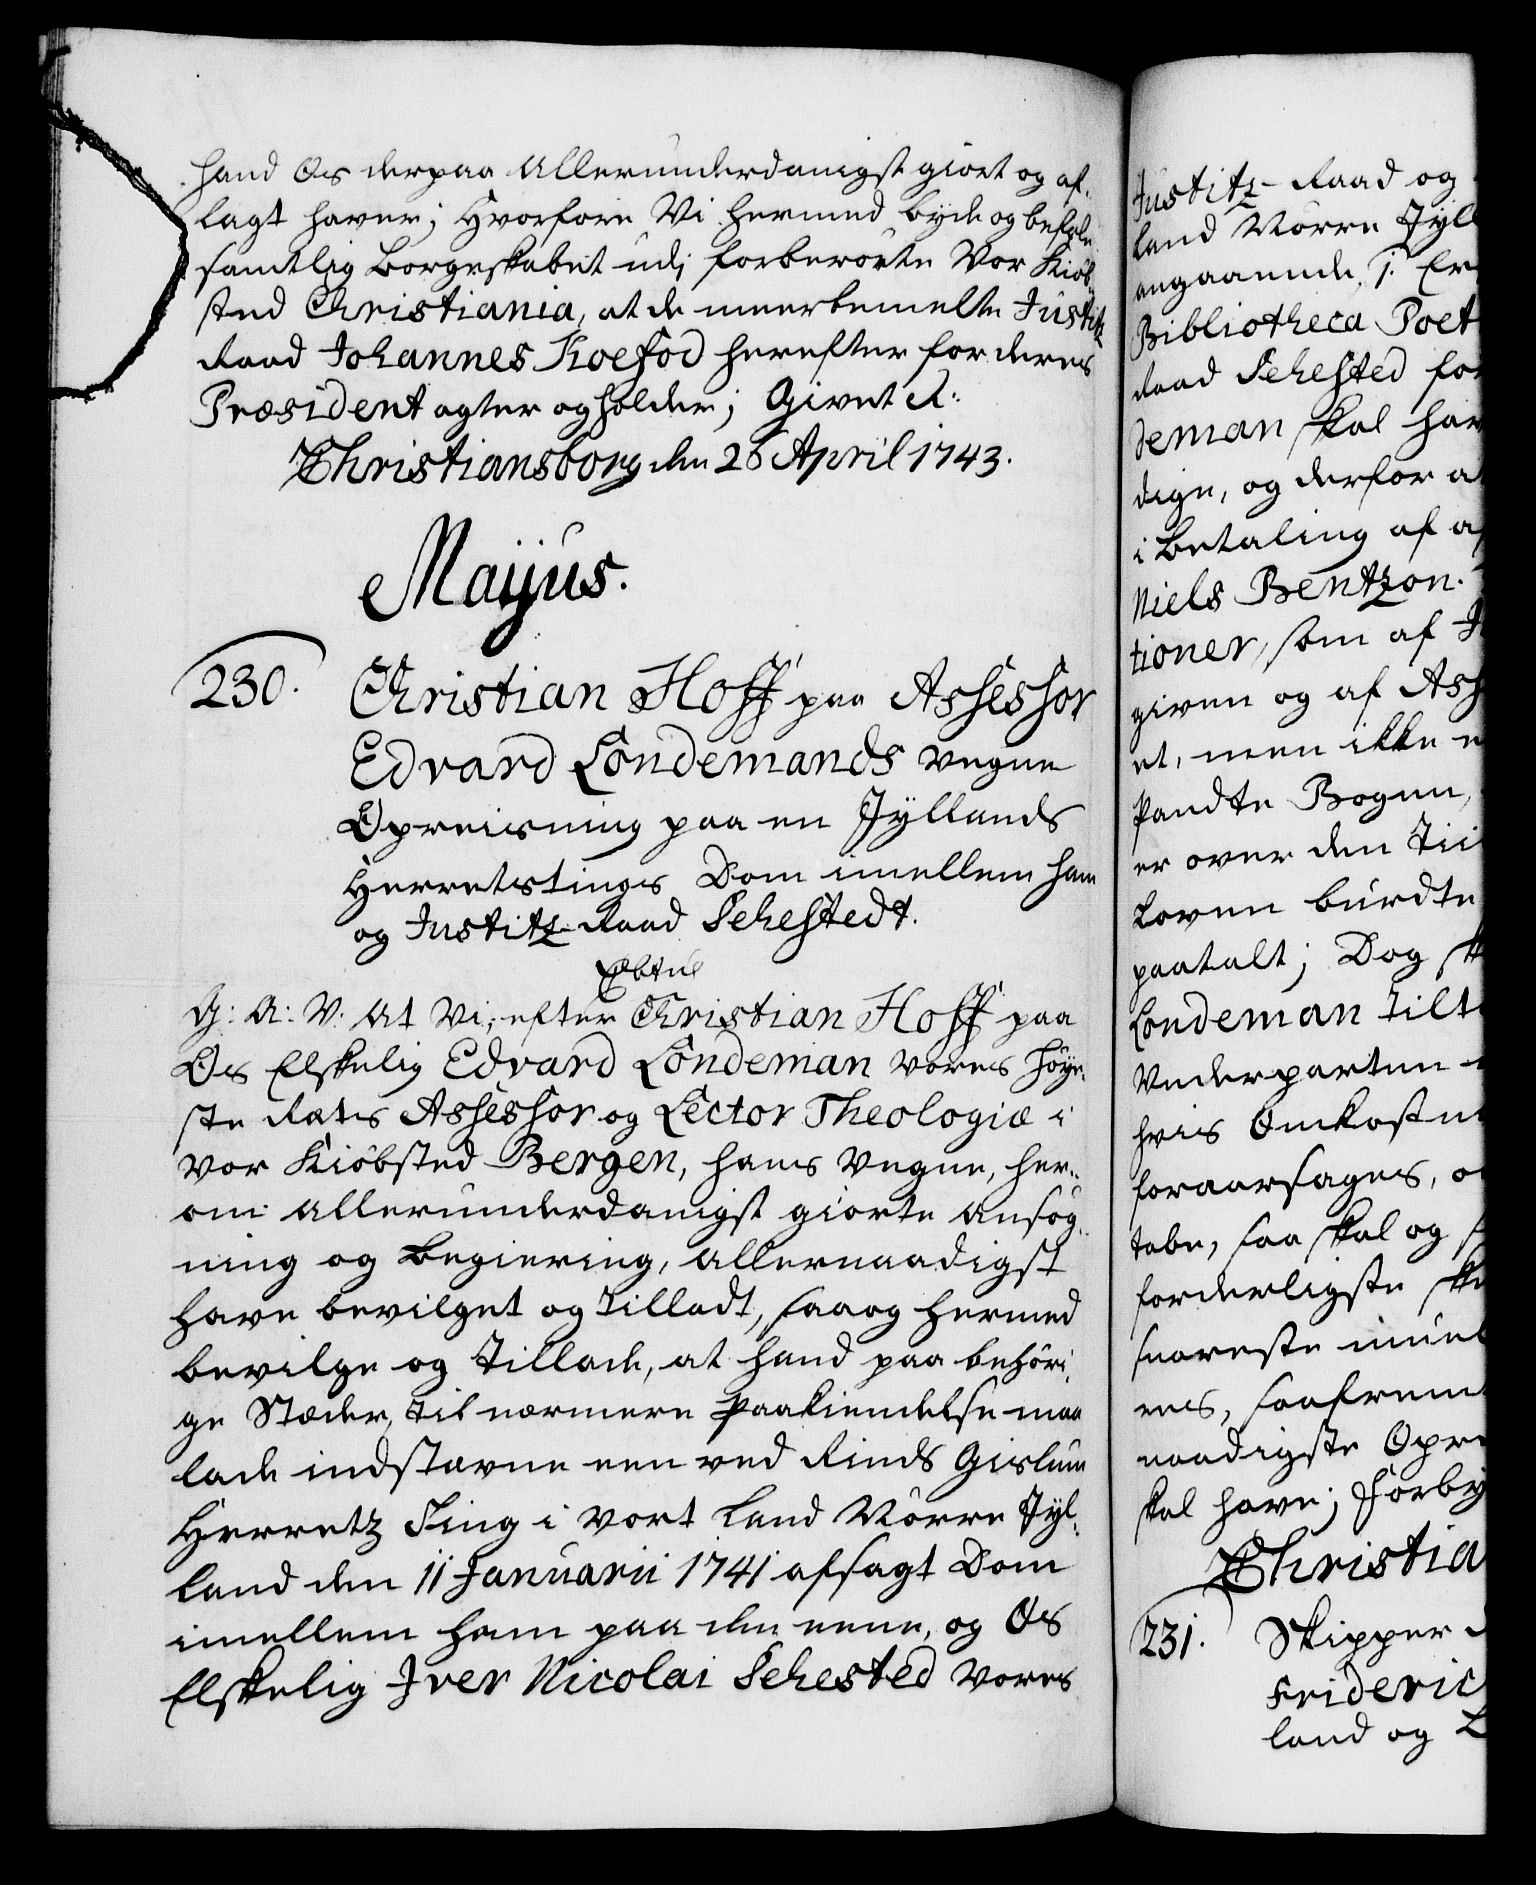 hand Os derpaa Allerunderdanigst giort og af-
lagt haver; Hvorfore Vi hermed byde og befale
samtlig Borgeskabet udj forberørte Vor Kiøb-
sted Christiania, at de meerbemelte Justitz
Raad Johannes Koefod herefter for deres
Præsident agter og holder; Givet &:
Christiansborg den 26 April 1743.
Maijus.
230.
Christian Hoff paa Assessor
Edvard Londemands vegne
Opreisning paa en Jyllands
Herretstings Dom imellem ham
og Justitz-Raad Sehestedt.
G: A: V. At Vi, efter Christian Hoff paa
Os Elskelig Edvard Londeman vores høye-
ste Rets Assessor og Lector Theologiæ i
vor Kiøbsted Bergen, hans vegne, her-
om allerunderdanigst giorte ansøg-
ning og Begiering, allernaadigst
have bevilget og tilladt, saa og hermed
bevilge og tillade, at hand paa behøri-
ge Stæder, til nærmere Paakiendelse maa
lade indstævne een ved Rinds Gislum
Herretz Ting i vort Land Nørre Jyl-
land den 11 Januarii 1741 afsagt Dom
imellem ham paa den eene, og Os
Elskelig Iver Nicolai Sehested vores
Justitz-Raad og
Land Nørre Jyll
angaaende, 1: Er
Bibliotheca Poet
Raad Sehested for
deman skal hav
dige, og derfor a
i Betaling af a
Niels Bentzon.
tioner, som af J
given og af Ass
et, men ikke e
Pandte Bogen,
er over den Tii
Loven burdte
paatalt; Dog sk
Londeman tilt
Vederparten
hvis Omkostni
foraarsages, o
tabe, saa skal og s
forderligste sk
snareste muel
res, saafrem
naadigste Opr
skal have; Forby
Christia
231.
Skipper
Frideric
land og L